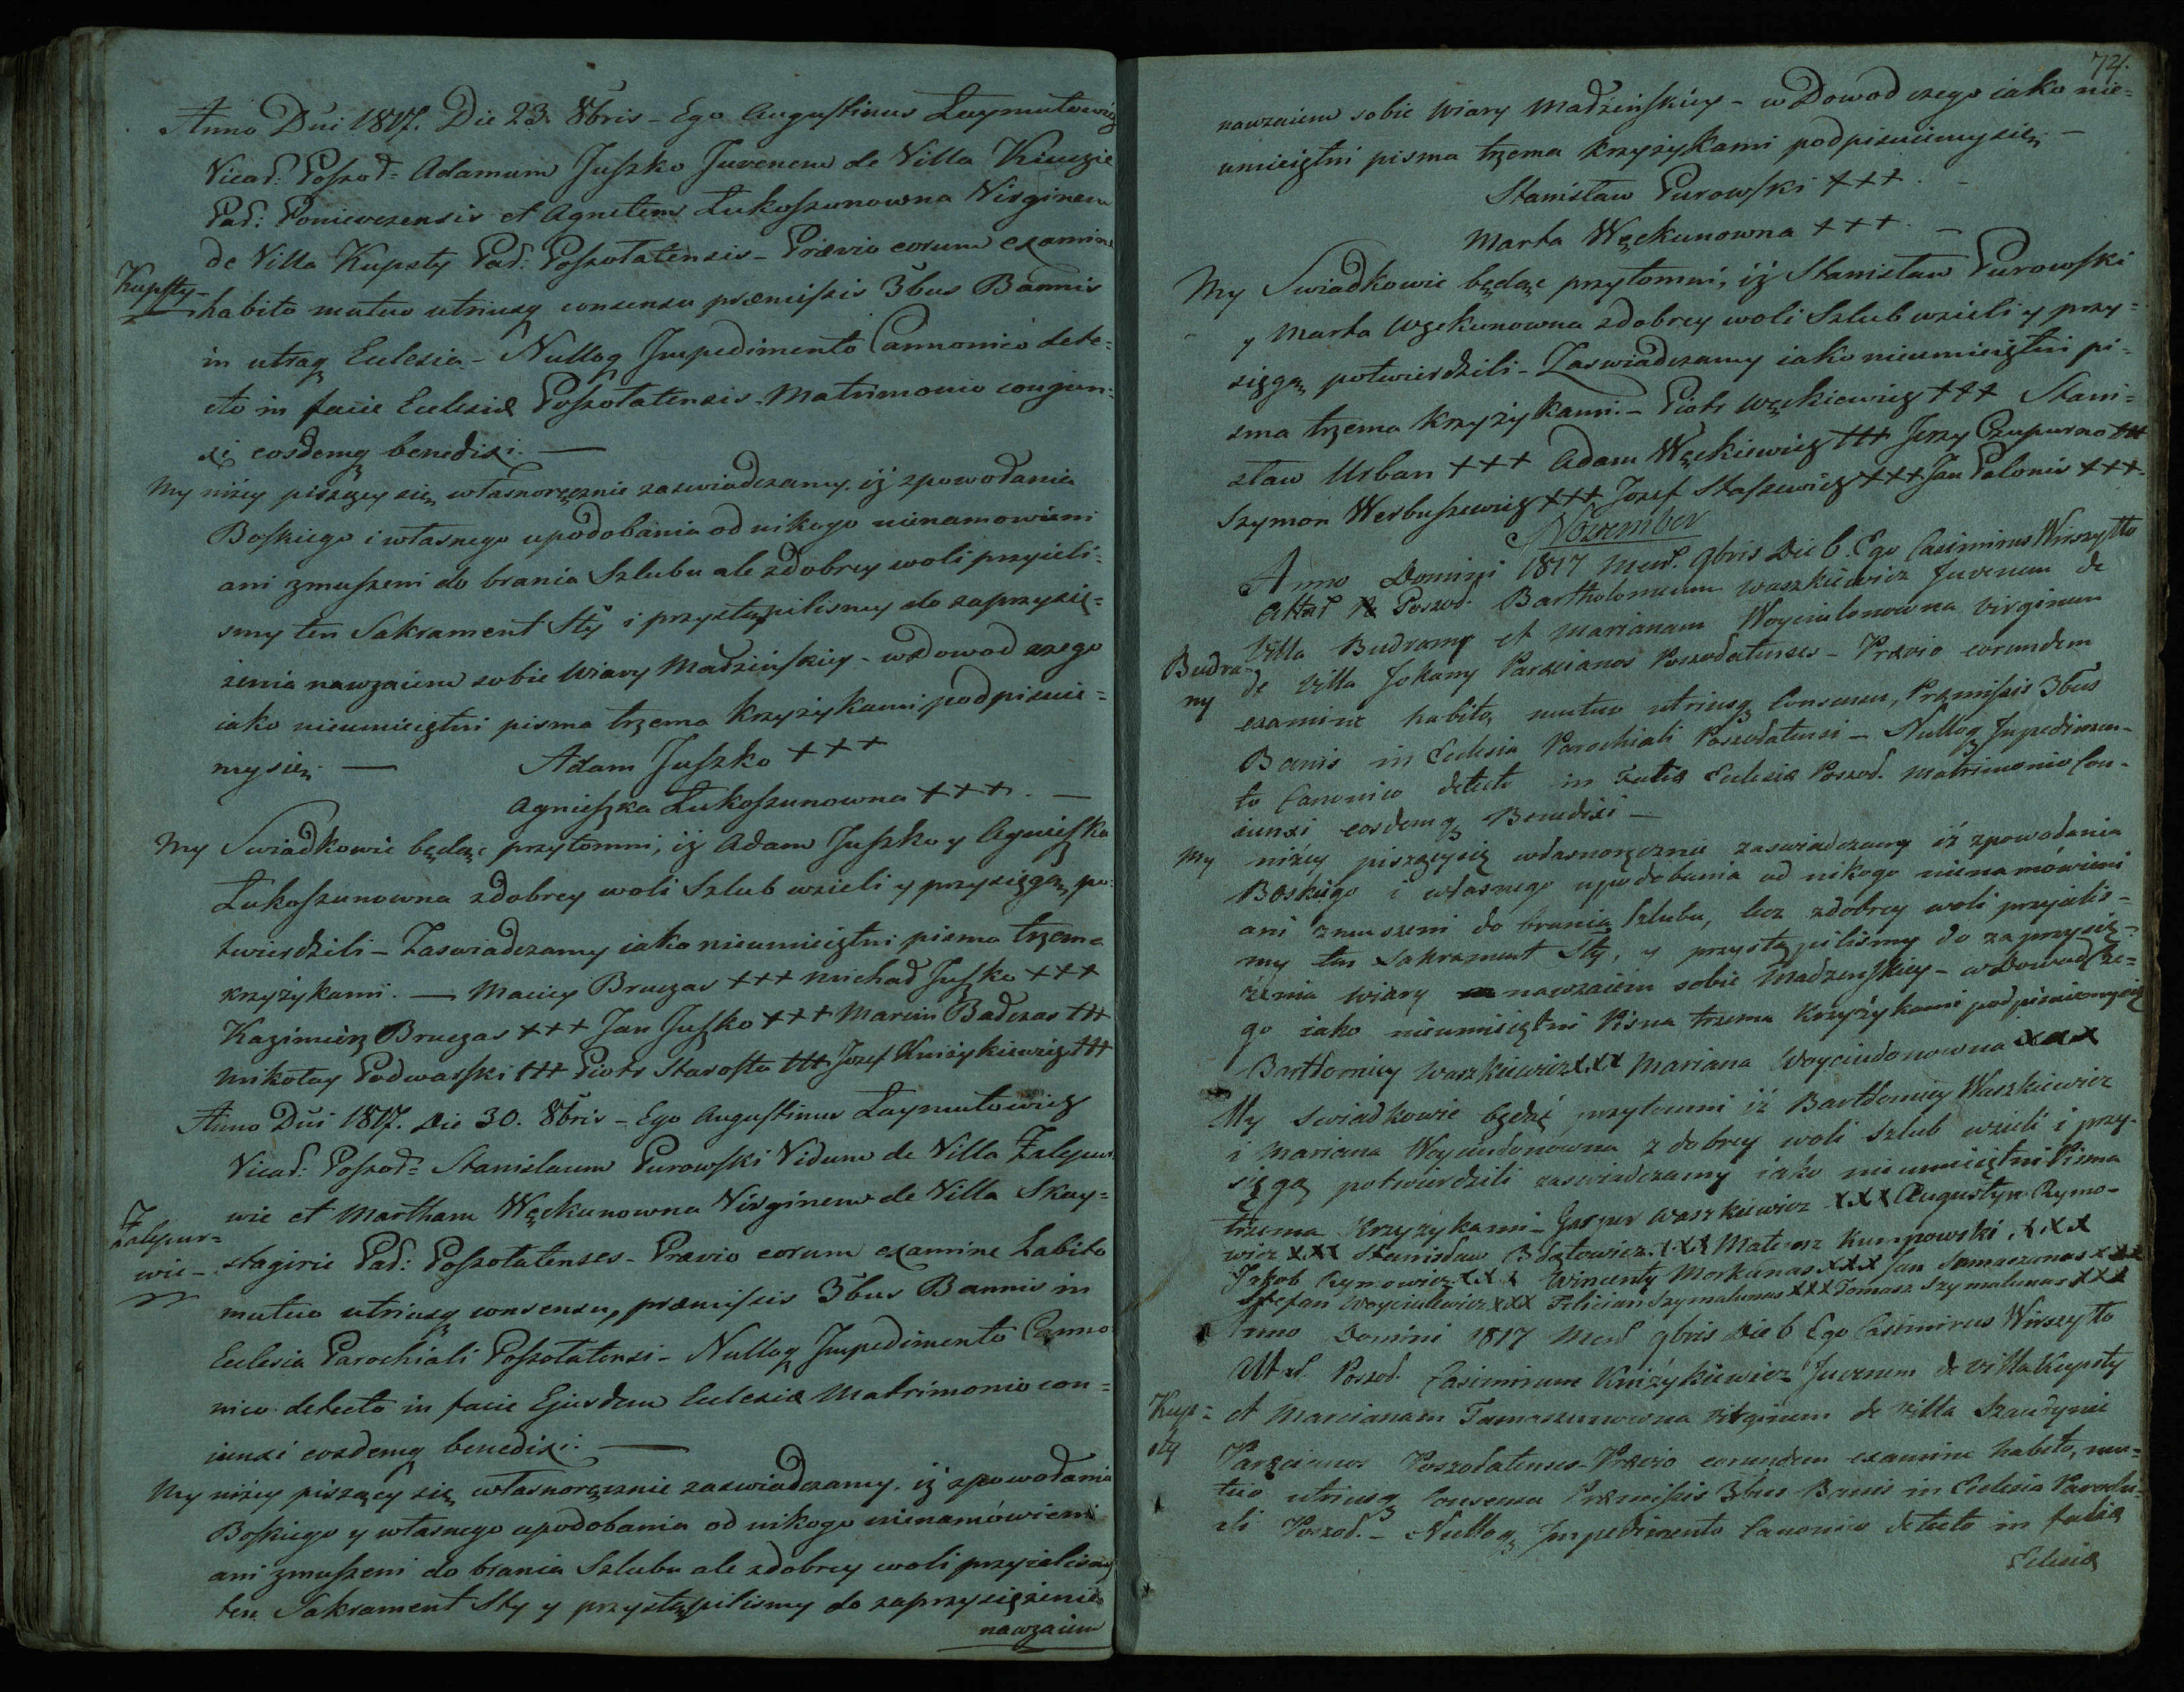 Anno Dni 1817. Die 23. 8bris - Ego Augustinus Laymutowicz
Vicar: Poszod= Adamum Juszko Juvenem de Villa
Par: Poniewezensis et Agnetem Lukoszunowna Virginem
de Villa Kupsty Par: Poszolatensis - Prævio eorum examine
Kupsty-
habito mutuo utriusq consensu præmissis 3bus Bannis
in utraq Eclesia - Nulloq Impedimento Cannonico dete=
cto in facie Eclesiæ Poszolatensis. Matrimonio conjun=
xi eosdemq benedixi. —
My niżey piszący się własnoręcznie zaswiadczamy. iż zpowołania
Boskiego i własnego upodobania od nikogo nienamowieni
ani zmuszeni do brania Szlubu ale zdobrey woli przyieli=
smy ten Sakrament Sty i przystąpilismy do zaprzysię=
żenia nawzaiem sobie Wiary Madzińskiey - wdowod czego
iako nieumieiętni pisma trzema krzyżykami podpisuie=
my się. — Adam Juszko +++
Agnieszka Lukoszunowna +++. —
My Swiadkowie będąc przytomni, iż Adam Juszko y Agnieszka
Lukoszunowna zdobrey woli Szlub wzieli y przysięgą po=
twierdzili - Zaswiadczamy iako nieumieiętni pisma trzema
krzyżykami. — Maciey Bruczas +++ Michał Juszko +++
Kazimierz Bruczas +++ Jan Juszko +++ Marcin Badzas +++
Mikołay Podwarski +++ Piotr Starosta +++ Jozef Kniżykiewicz +++
Anno Dni 1817. Die 30. 8bris - Ego Augustinus Laymutowicz
Vicar: Poszod= Stanislaum Purowski Viduum de Villa Zalepur
wie et Martham Węckunowna Virginem de Villa Skay=
Zalepur=
wie -
stagirie Par: Poszolatenses - Prævio eorum examine habito
mutuo utriusq consensu, præmissis 3bus Bannis in
Eclesia Parochiali Poszolatensi - Nulloq Impedimento Canno
nico detecto in facie Ejusdem Eclesiæ Matrimonio con=
iunxi eosdemq benedixi. —
My niżey piszący się własnoręcznie zaswiadczamy. iż zpowołania
Boskiego y własnego upodobania od nikogo nienamówieni
ani zmuszeni do brania Szlubu ale zdobrey woli przyielismy
ten Sakrament Sty y przystąpilismy do zaprzysiężenia
nawzaiem
74.
nawzaiem sobie Wiary Madzińskiey - w Dowod czego iako nie=
umieiętni pisma trzema krzyżykami podpisuiemy się —
Stanisław Purowski +++. -
Marta Węckunowna +++. —
My Swiadkowie będąc przytomni, iż Stanisław Purowski
y Marta Węckunowna zdobrey woli Szlub wzieli y przy=
sięgą potwierdzili - Zaswiadczamy iako nieumieiętni pi=
sma trzema krzyżykami. - Piotr Węckiewicz +++ Stani=
sław Urban +++ Adam Węckiewicz +++ Jerzy Czupurna +++
Szymon Werbuszewicz +++ Jozef Staszewicz +++ Jan Palonis +++
November
Anno Domini 1817 Mens. 9bris Die 6. Ego Casimirus Wirszyłło
Altar Poszod. Bartholomeum Waszkiewicz Juvenem de
Villa Budramy et Marianam Woyciulonowna Virginem
Budra-
ny
de Villa Jokany Parœcianos Poszodatenses - Prævio eorumdem
examine habito, mutuo utriusq Consensu, Præmissis 3bus
Banis in Eclesia Parochiali Poszodatensi - Nulloq Inpedimen-
to Canonico detecto in Facie Eclesiæ Poszod. Matrimonio Con-
iunxi eosdemq Benedixi —
My niżey piszącysię własnoręcznie zaswiadczamy iż zpowodania
Boskiego i własnego upodobania od nikogo nienamówieni
ani zmuszeni do brania Szlubu, lecz zdobrey woli przyielis-
my ten Sakrament Sty, y przystąpilismy do zaprzysię-
żenia Wiary nawzaiem sobie Madzenskiey - wDowod Cze=
go iako nieumieiętni Pisma trzema Krzyżykami podpisuiemysię
Bartłomiey Waszkiewicz xxx Mariana Woyciulonowna xxx
My Swiadkowie będąc przytomni iż Bartłomiey Waszkiewicz
i Mariana Woyciulonowna z dobrey woli Szlub wzieli i przy-
sięgą potwierdzili zaswiadczamy iako nieumieiętni Pisma
trzema Krzyżykami - Gasper Waszkiewicz xxx Augustyn Rymo-
wicz xxx Stanisław xxx Mateusz Kumpowski xxx
Jakob Rymowicz xxx Wincenty Morkunas xxx Jan xxx
Stefan Woyciulewicz xxx Felician Szymalunas xxx Tomasz Szymalunas xxx
Anno Domini 1817 Mens 9bris Die 6 Ego Casimirus Wirszyłło
Altar. Poszod. Casimirum Kniżykiewicz Juvenem de Villa Kupsty
Kup=
sty
et Marcianam Tamaszunowna Virginem de Villa Szaudynie
Parœcianos Poszodatenses - Prævio eorumdem examine habito, mu=
tuo utriusq Consensu Præmissis 3bus Banis in Eclesia Parochi-
ali Poszod. - Nulloq Impedimento Canonico detecto in facie
Eclesiæ